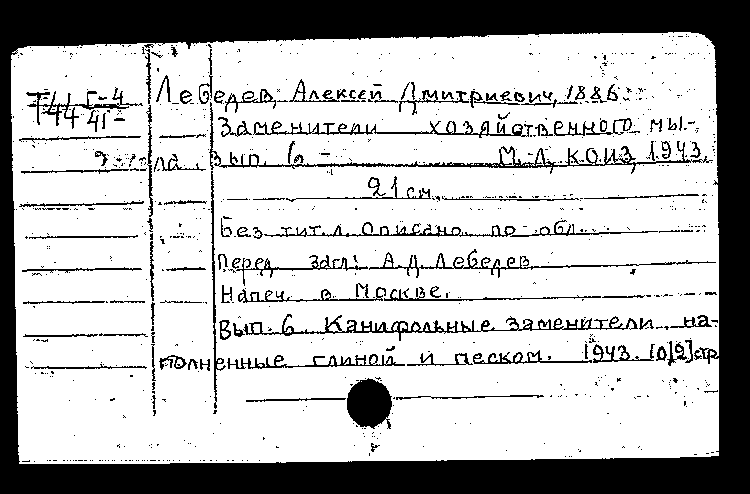 Лебедев, Алексей Дмитриевич, 1886-
Заменители хозяйственного мы-
ла. Вып. 6 - М.-Л, КОИЗ, 1943.
21 см.
Без тит. л. Описано по обл.
Перед загл: А.Д. Лебедев
Напеч. в Москве.
Вып. 6 Канифольные заменители на-
полненные глиной и песком. 1943. стр